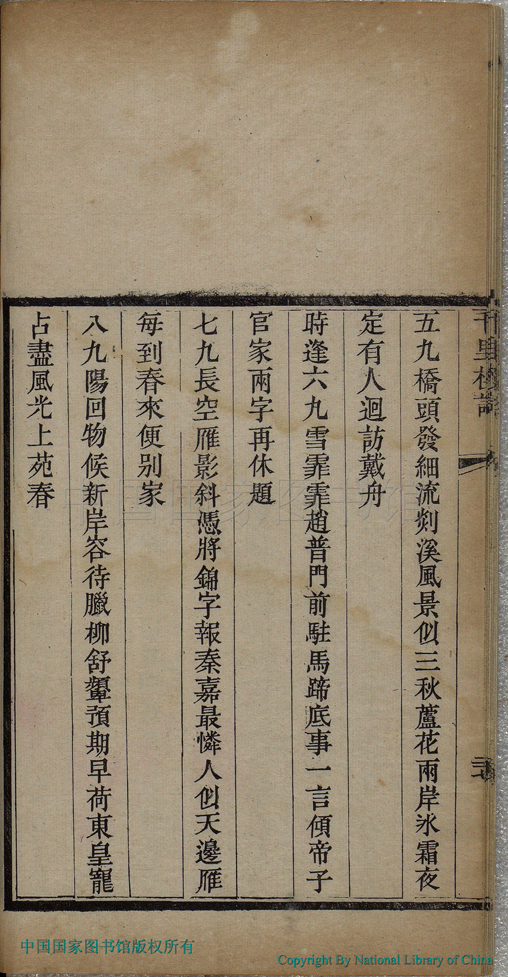 五九橋頭發細流剡溪風景似三秋蘆花兩岸氷霜夜
定有人迴訪戴舟
時逢六九雪霏霏趙普門前駐馬蹄底事一言傾帝子
官家兩字再休題
七九長空雁影斜憑將錦字報秦嘉最憐人似天邊雁
每到春來便别家
八九陽回物候新岸容待臘柳舒顰預期早荷東皇寵
占盡風光上苑春
中国国家图书馆版权所有
Copyright By National Library of China